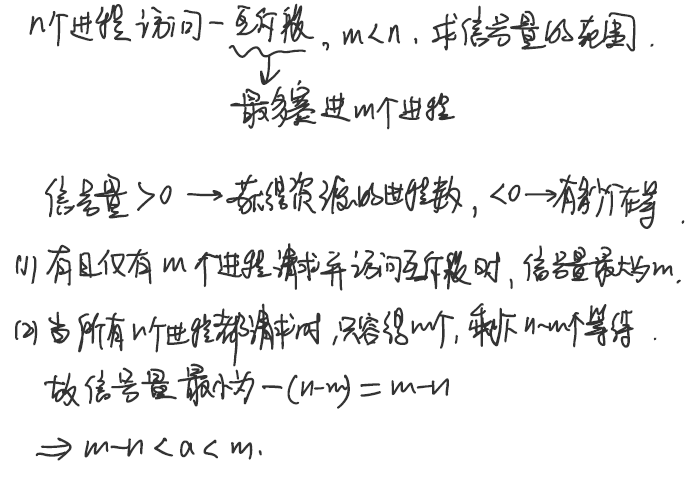 n个进程访问一互斥段，m<n，求信号量的范围．
最多塞进m个进程
信号量>0 → 获得资源的进程数，<0→有多少个在等．
(1) 有且仅有m个进程请求并访问互斥段时，信号量最大为m．
(2) 当所有n个进程都请求时，只容得m个，剩下n-m个等待．
故信号量最小为-(n-m)=m-n
⇒ m-n<a<m．